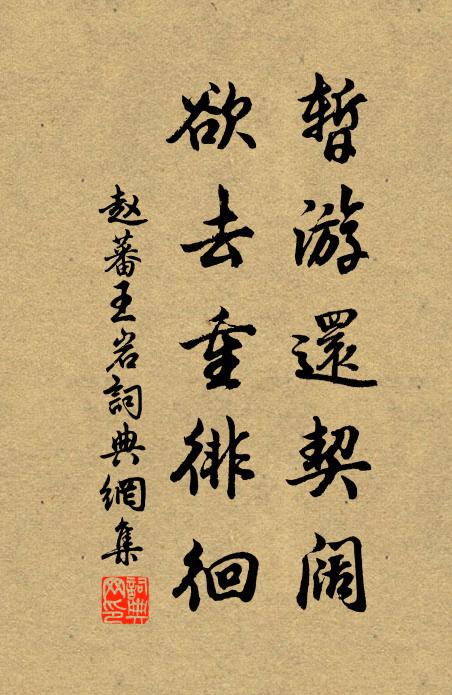 暫游還契阔
欲去重徘徊
赵蕃王岩詞典網集
詞典网印